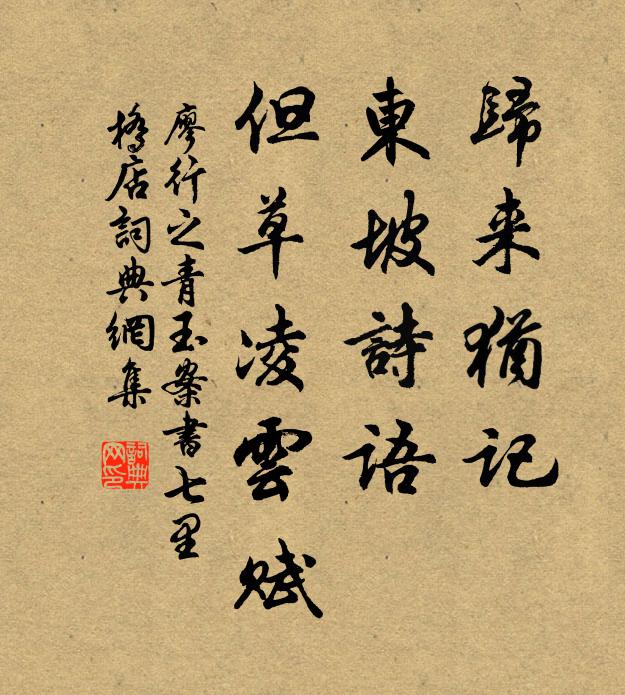 歸来猶記
東坡詩語
但草凌雲賦
廖行之青玉案書七里
橋店詞典網集
詞典
网印